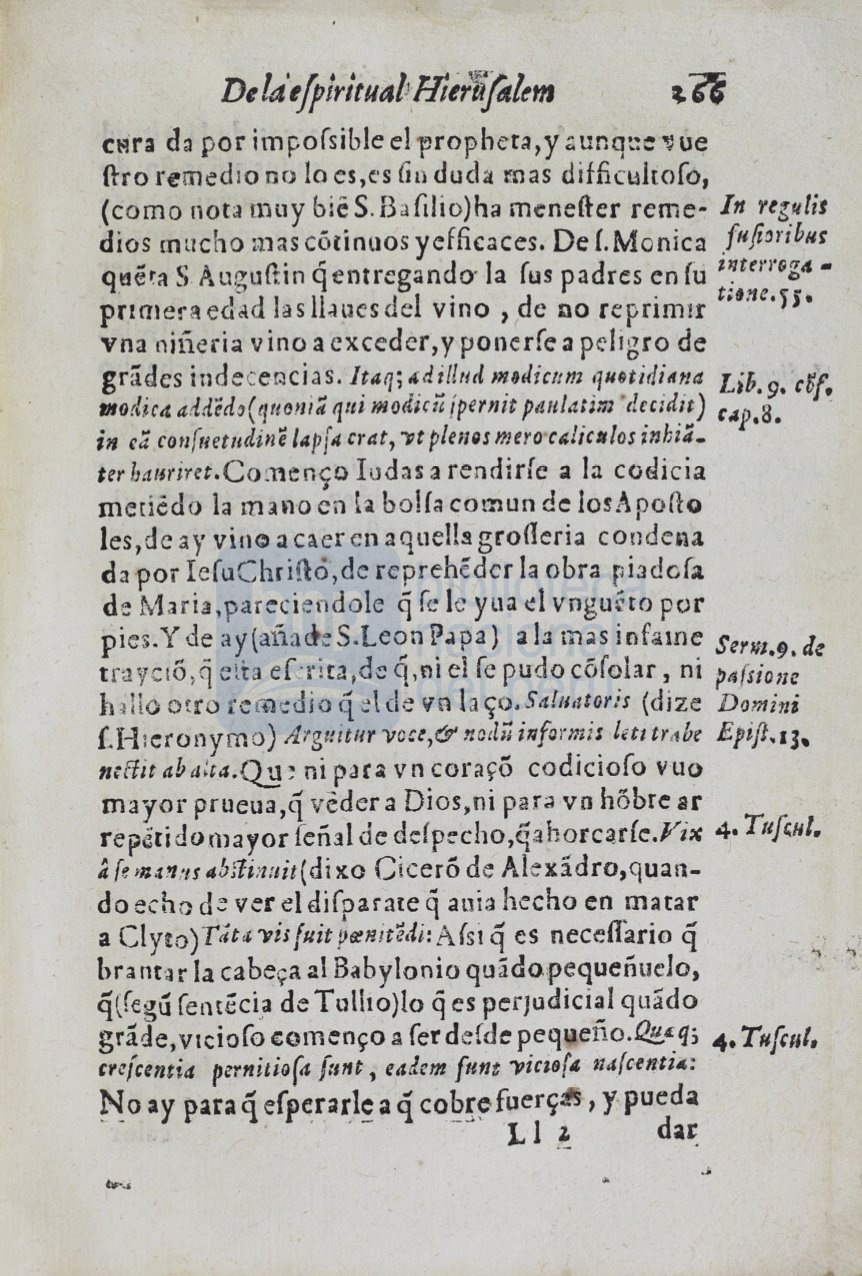 De la eſpiritual Hieruſalem 266
cura da por impoſsible el propheta, y aunque vue
ſtro remedio no lo es, es ſin duda mas difficultoſo,
(como nota muy biē S. Baſilio) ha meneſter reme-
dios mucho mas cōtinuos y efficaces. De ſ. Monica
quēta S Auguſtin q̃ entregando la ſus padres en ſu
primera edad las llaues del vino , de no reprimir
vna niñeria vino a exceder, y ponerſe a peligro de
grādes indecencias. Itaq; ad illud modicum quotidiana
modica addēdo (quoniā qui modicũ ſpernit paulatim decidit)
in eā conſuetudinē lapſa erat, vt plenos mero caliculos inhiā-
ter hauriret. Començo Iudas a rendirſe a la codicia
metiēdo la mano en la bolſa comun de los Apoſto
les, de ay vino a caer en aquella groſſeria condena
da por IeſuChriſto, de reprehēder la obra piadoſa
de Maria, pareciendole q̃ ſe le yua el vnguēto por
pies. Y de ay (añade S. Leon Papa) a la mas infame
trayciō, q̃ eſta eſcrita, de q̃, ni el ſe pudo cōſolar , ni
hallo otro remedio q̃ el de vn laço. Saluatoris (dize
ſ. Hieronymo) Arguitur voce, & nodũ informis leti trabe
nectit ab alta. Que ni para vn coraçō codicioſo vuo
mayor prueua, q̃ vēder a Dios, ni para vn hōbre ar
repētido mayor ſeñal de deſpecho, q̃ ahorcarſe. Vix
â ſe manus abſtinuit (dixo Cicerō de Alexādro, quan-
do echo de ver el diſparate q̃ auia hecho en matar
a Clyto) Tāta vis fuit pœnitēdi: Aſsi q̃ es neceſſario q̃
brantar la cabeça al Babylonio quādo pequeñuelo,
q̃ (ſegũ ſentēcia de Tullio) lo q̃ es perjudicial quādo
grāde, vicioſo començo a ſer deſde pequeño. Quæq;
creſcentia pernitioſa ſunt , eadem ſunt vicioſa naſcentia:
No ay para q̃ eſperarle a q̃ cobre fuerças , y pueda
Ll 2 dar
In regulis
fuſioribus
interroga-
tione. 55.
Lib. 9. cōf.
cap. 8.
Serm. 9. de
paſsione
Domini
Epiſt. 13.
4. Tuſcul.
4. Tuſcul.